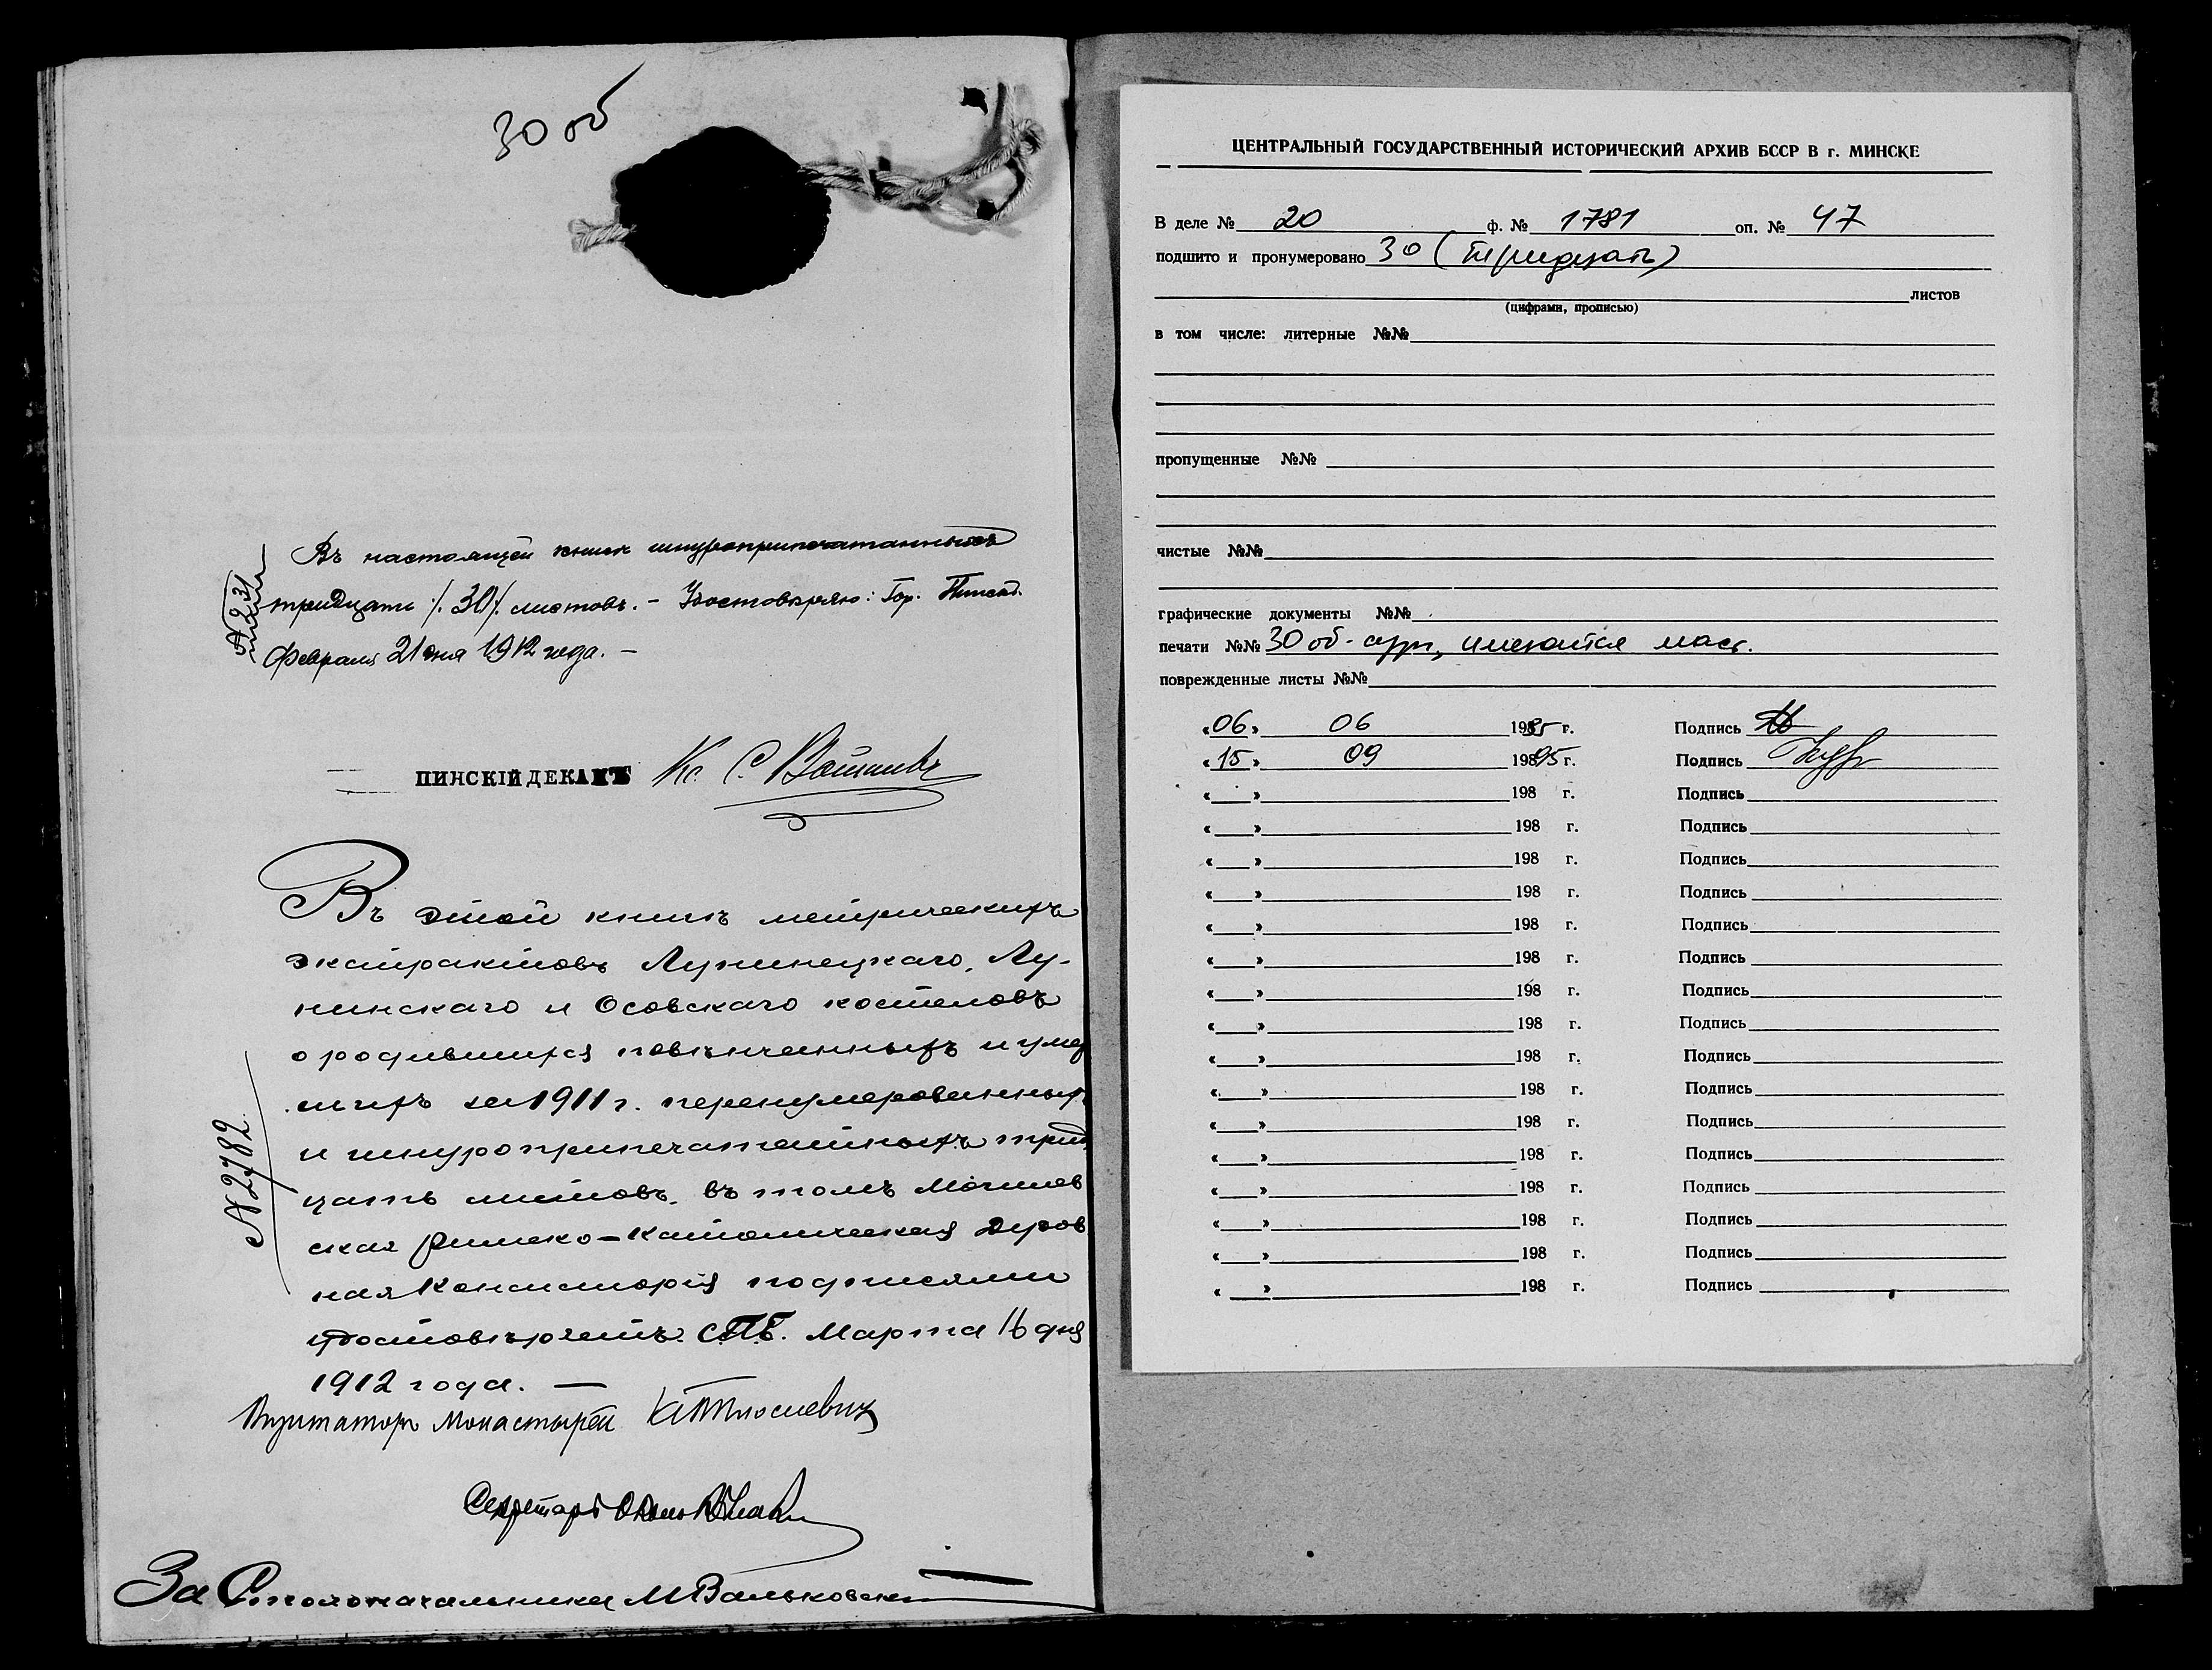 30 об
Въ настоящей книгѣ шнуроприпечатанныхъ
тридцать /. 30 /. листовъ. – Удостовѣряю: Гор. Пинскъ.
Февраля 21 дня 1912 года. –
ПИНСКІЙ ДЕКАНЪ Кс. С.
Въ этой книгѣ метрическихъ
экстрактовъ Лунинецкаго, Лу-
нинскаго и Осовскаго костеловъ
о родившихся повѣнчанныхъ и умер
шихъ за 1911 г. перенумерованныхъ
и шнуроприпечатанныхъ трид
цать листовъ. въ томъ Могилев
ская Римско-Католическая Духов
ная Консисторія подписями
удостовѣряетъ. СПБ. Марта 16 дня
1912 года. —
№ 2782.
Визитаторъ Монастырей
Секретарь
За Столоначальника М Вальковски
ЦЕНТРАЛЬНЫЙ ГОСУДАРСТВЕННЫЙ ИСТОРИЧЕСКИЙ АРХИВ БССР В г. МИНСКЕ
В деле № 20 ф. № 1781 оп. № 47
подшито и пронумеровано 30 (тридцать)
листов
(цифрами, прописью)
в том числе: литерные №№
пропущенные №№
чистые №№
графические документы №№
печати №№ 30 об - сург, имеются маст.
поврежденные листы №№
«06» 06 1985 г. Подпись
«15» 09 19895 г. Подпись
«__» 198 г. Подпись
«__» 198 г. Подпись
«__» 198 г. Подпись
«__» 198 г. Подпись
«__» 198 г. Подпись
«__» 198 г. Подпись
«__» 198 г. Подпись
«__» 198 г. Подпись
«__» 198 г. Подпись
«__» 198 г. Подпись
«__» 198 г. Подпись
«__» 198 г. Подпись
«__» 198 г. Подпись
«__» 198 г. Подпись
«__» 198 г. Подпись
«__» 198 г. Подпись